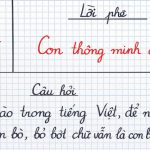 Lời phê
Con thông minh
Câu hỏi
ào trong tiếng Việt, để n
n bò, bỏ bớt chữ vẫn là con b